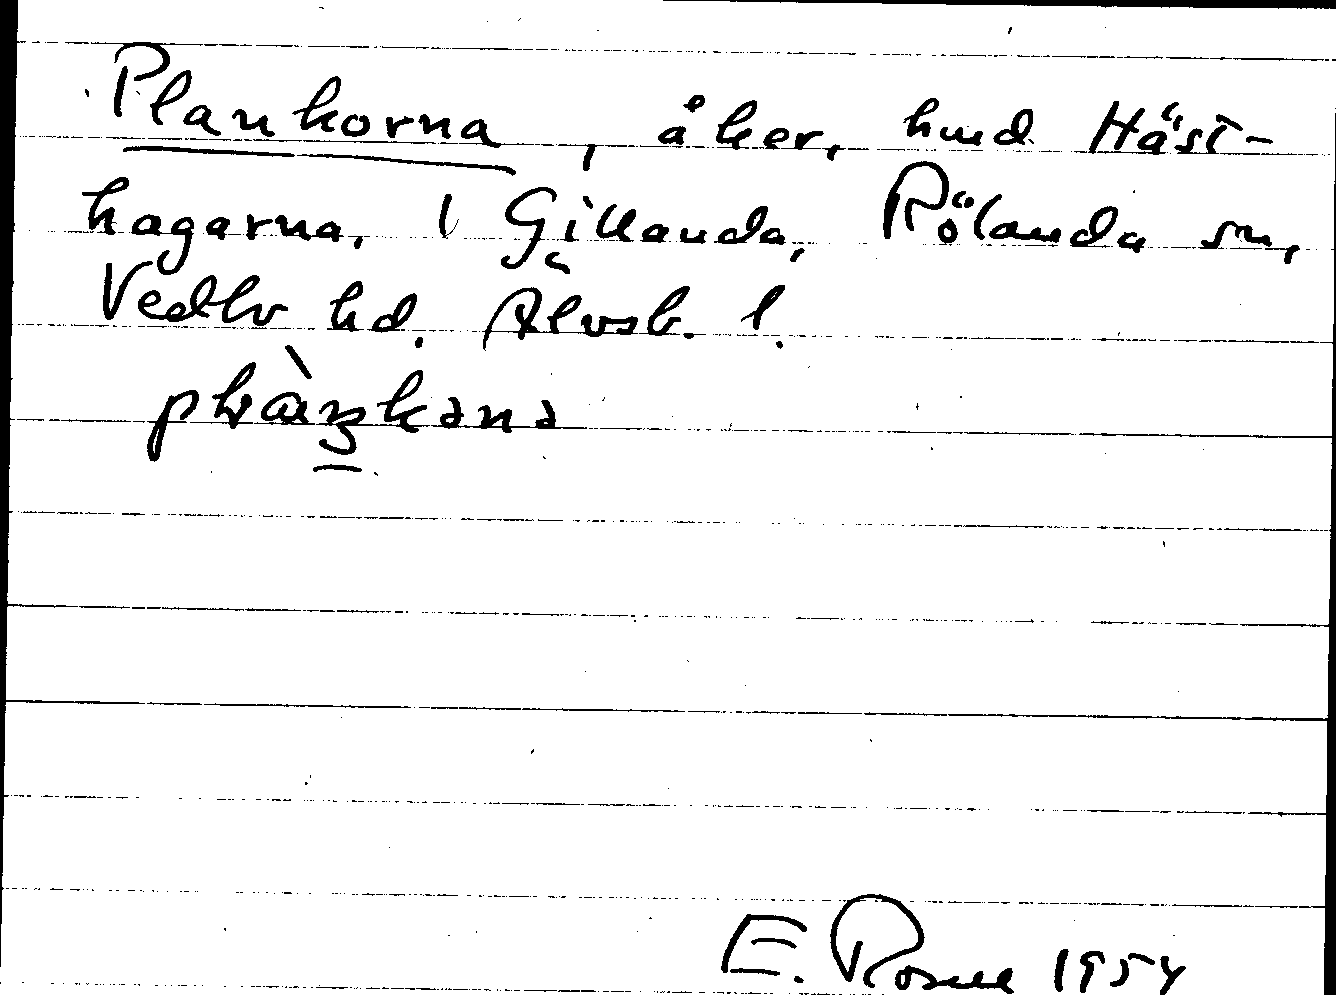 Plankorna, åker, hmd Häst-
hagarna, 1 Gillanda, Rölanda sn,
Vedbo hd. Älvsb. l.
E. Rosell 1954